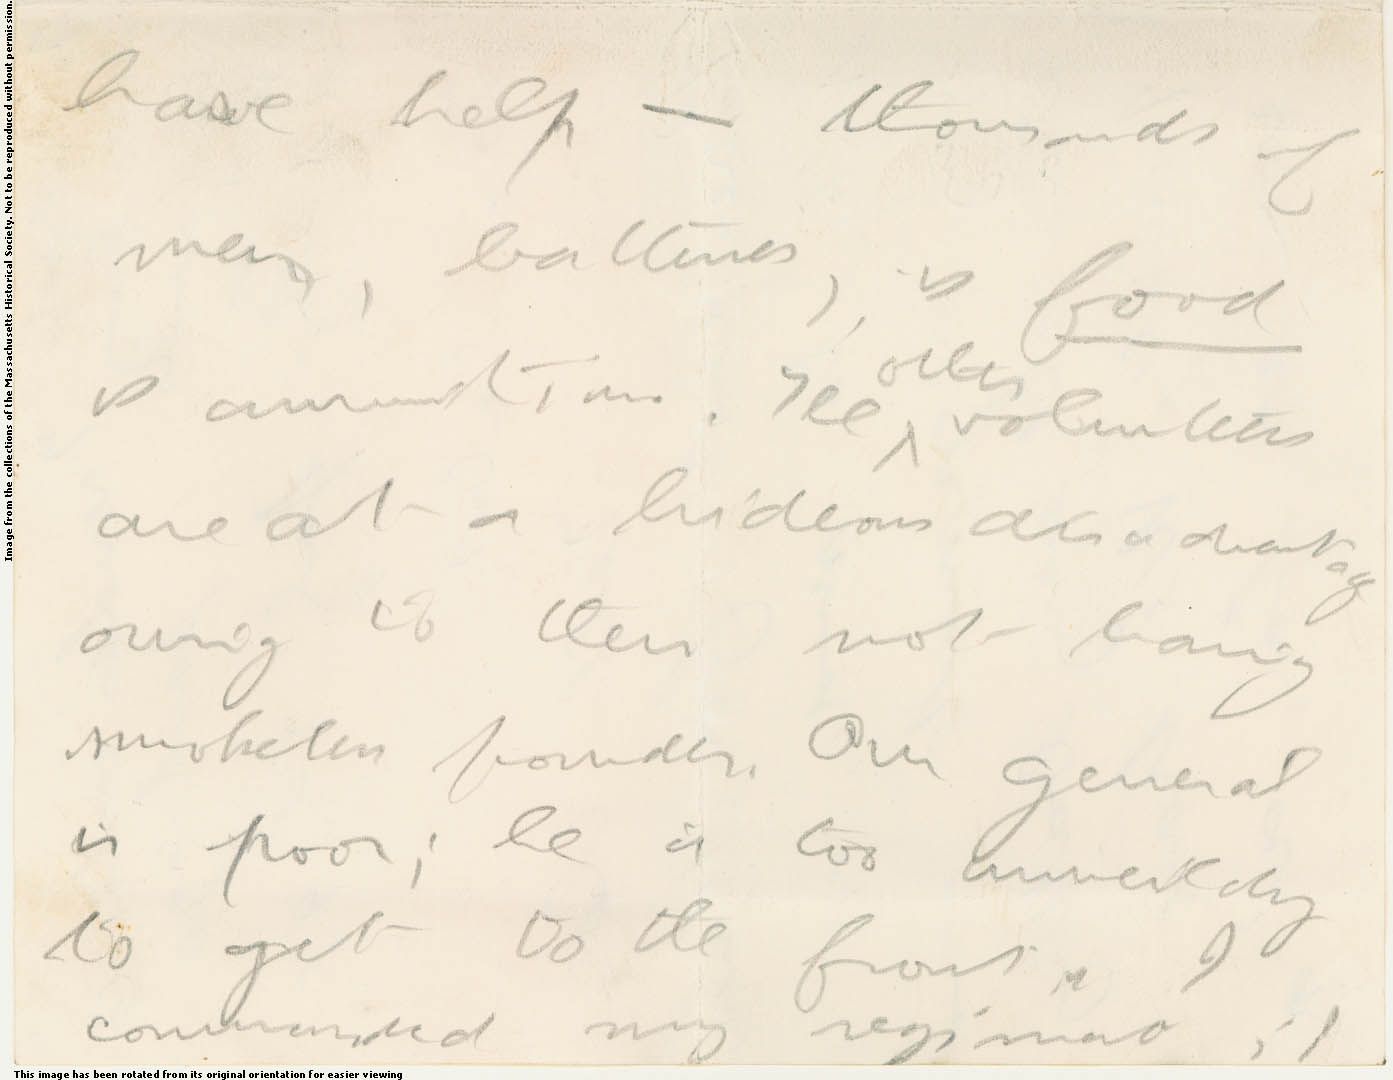 Image from the collections of the Massachusetts Historical Society. Not to be reproduced without permission.
have help — thousands of
men, batteries, & food
& ammunition. The ^other volunteers
are at a hideous disadvantage
owing to their not having
smokeless powder. Our general
is poor; he is too unwieldy
to get to the front. I
commanded my regiment, I
This image has been rotated from its original orientation for easier viewing